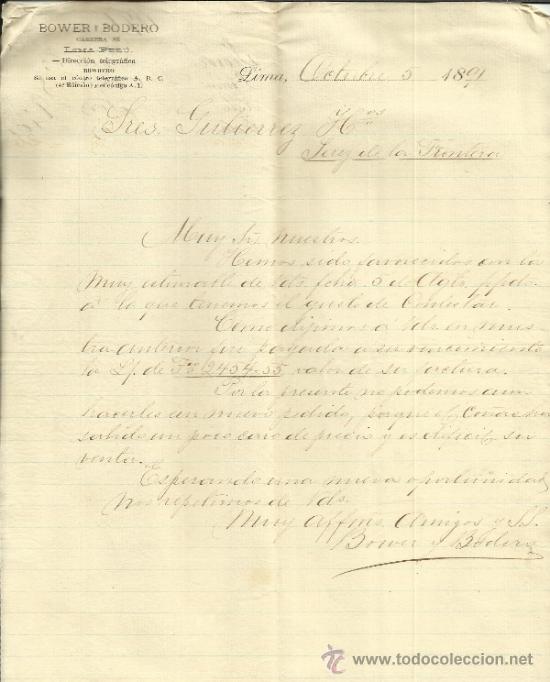 BOWER Y BODERO
LIMA PERÚ.
— Dirección telegráfica
Se usa el código telegráfico A. B. C.
Lima, Octubre 5 1891
Sres. Gutierrez Hnos
Jerez de la Frontera
Muy Srs. nuestros.
Hemos sido favorecidos con la
muy estimable de Vds. fcha. 5 de Agto. ppdo.
á la que tenemos el gusto de contestar.
Como dijimos á Vds en nues-
tra anterior fué pagada a su vencimiento
la L/ de 2454-55 valor de su factura.
Por la presente no podemos aun
hacerles un nuevo pedido, porque el
salido un poco caro de precio y es dificil su
venta.
Esperando una nueva oportunidad
nos repetimos de Vds.
Muy Affmos. Amigos y S.S.
Bower y Bodero
todocoleccion
www.todocoleccion.net